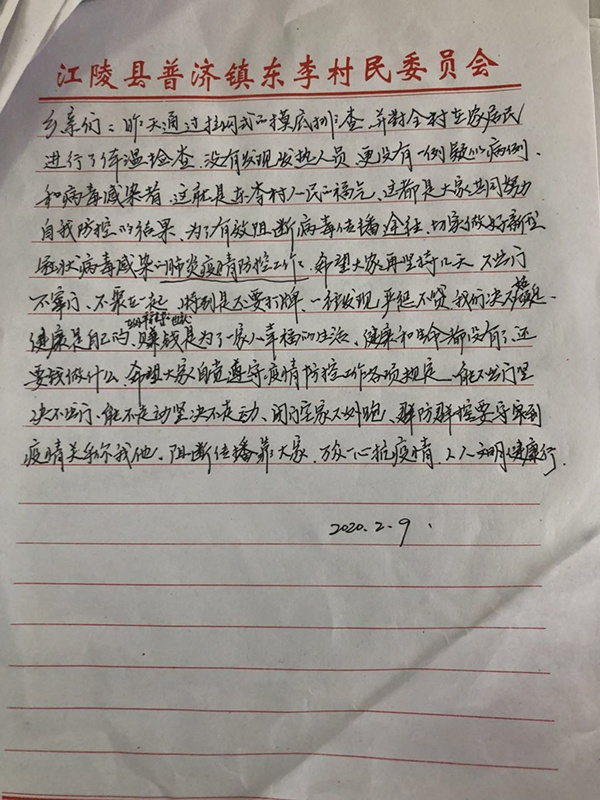 江陵县普济镇东李村民委员会
乡亲们：昨天通过挂网式的摸底排查，并对全村在家居民
进行了体温检查，没有发现发热人员，更没有一例疑似病例、
和病毒感染者，这就是东李村人民的福气，这都是大家共同努力
自我防控的结果，为了有效阻断病毒传播途径，切实做好新型
冠状病毒感染的肺炎疫情防控工作，希望大家再坚持几天，不出门
不串门、不聚在一起，特别是不要打牌，一经发现，严惩不贷，我们决不
健康是自己的，赚钱是为了一家人幸福的生活、健康和生命都没有了，还
要钱做什么，希望大家自觉遵守疫情防控工作各项规定，能不出门坚
决不出门，能不走动坚决不走动、闭门在家不外跑、群防群控要守牢到
疫情关系你我他，阻断传播靠大家，万众一心抗疫情，人人文明健康行.
2020.2.9.